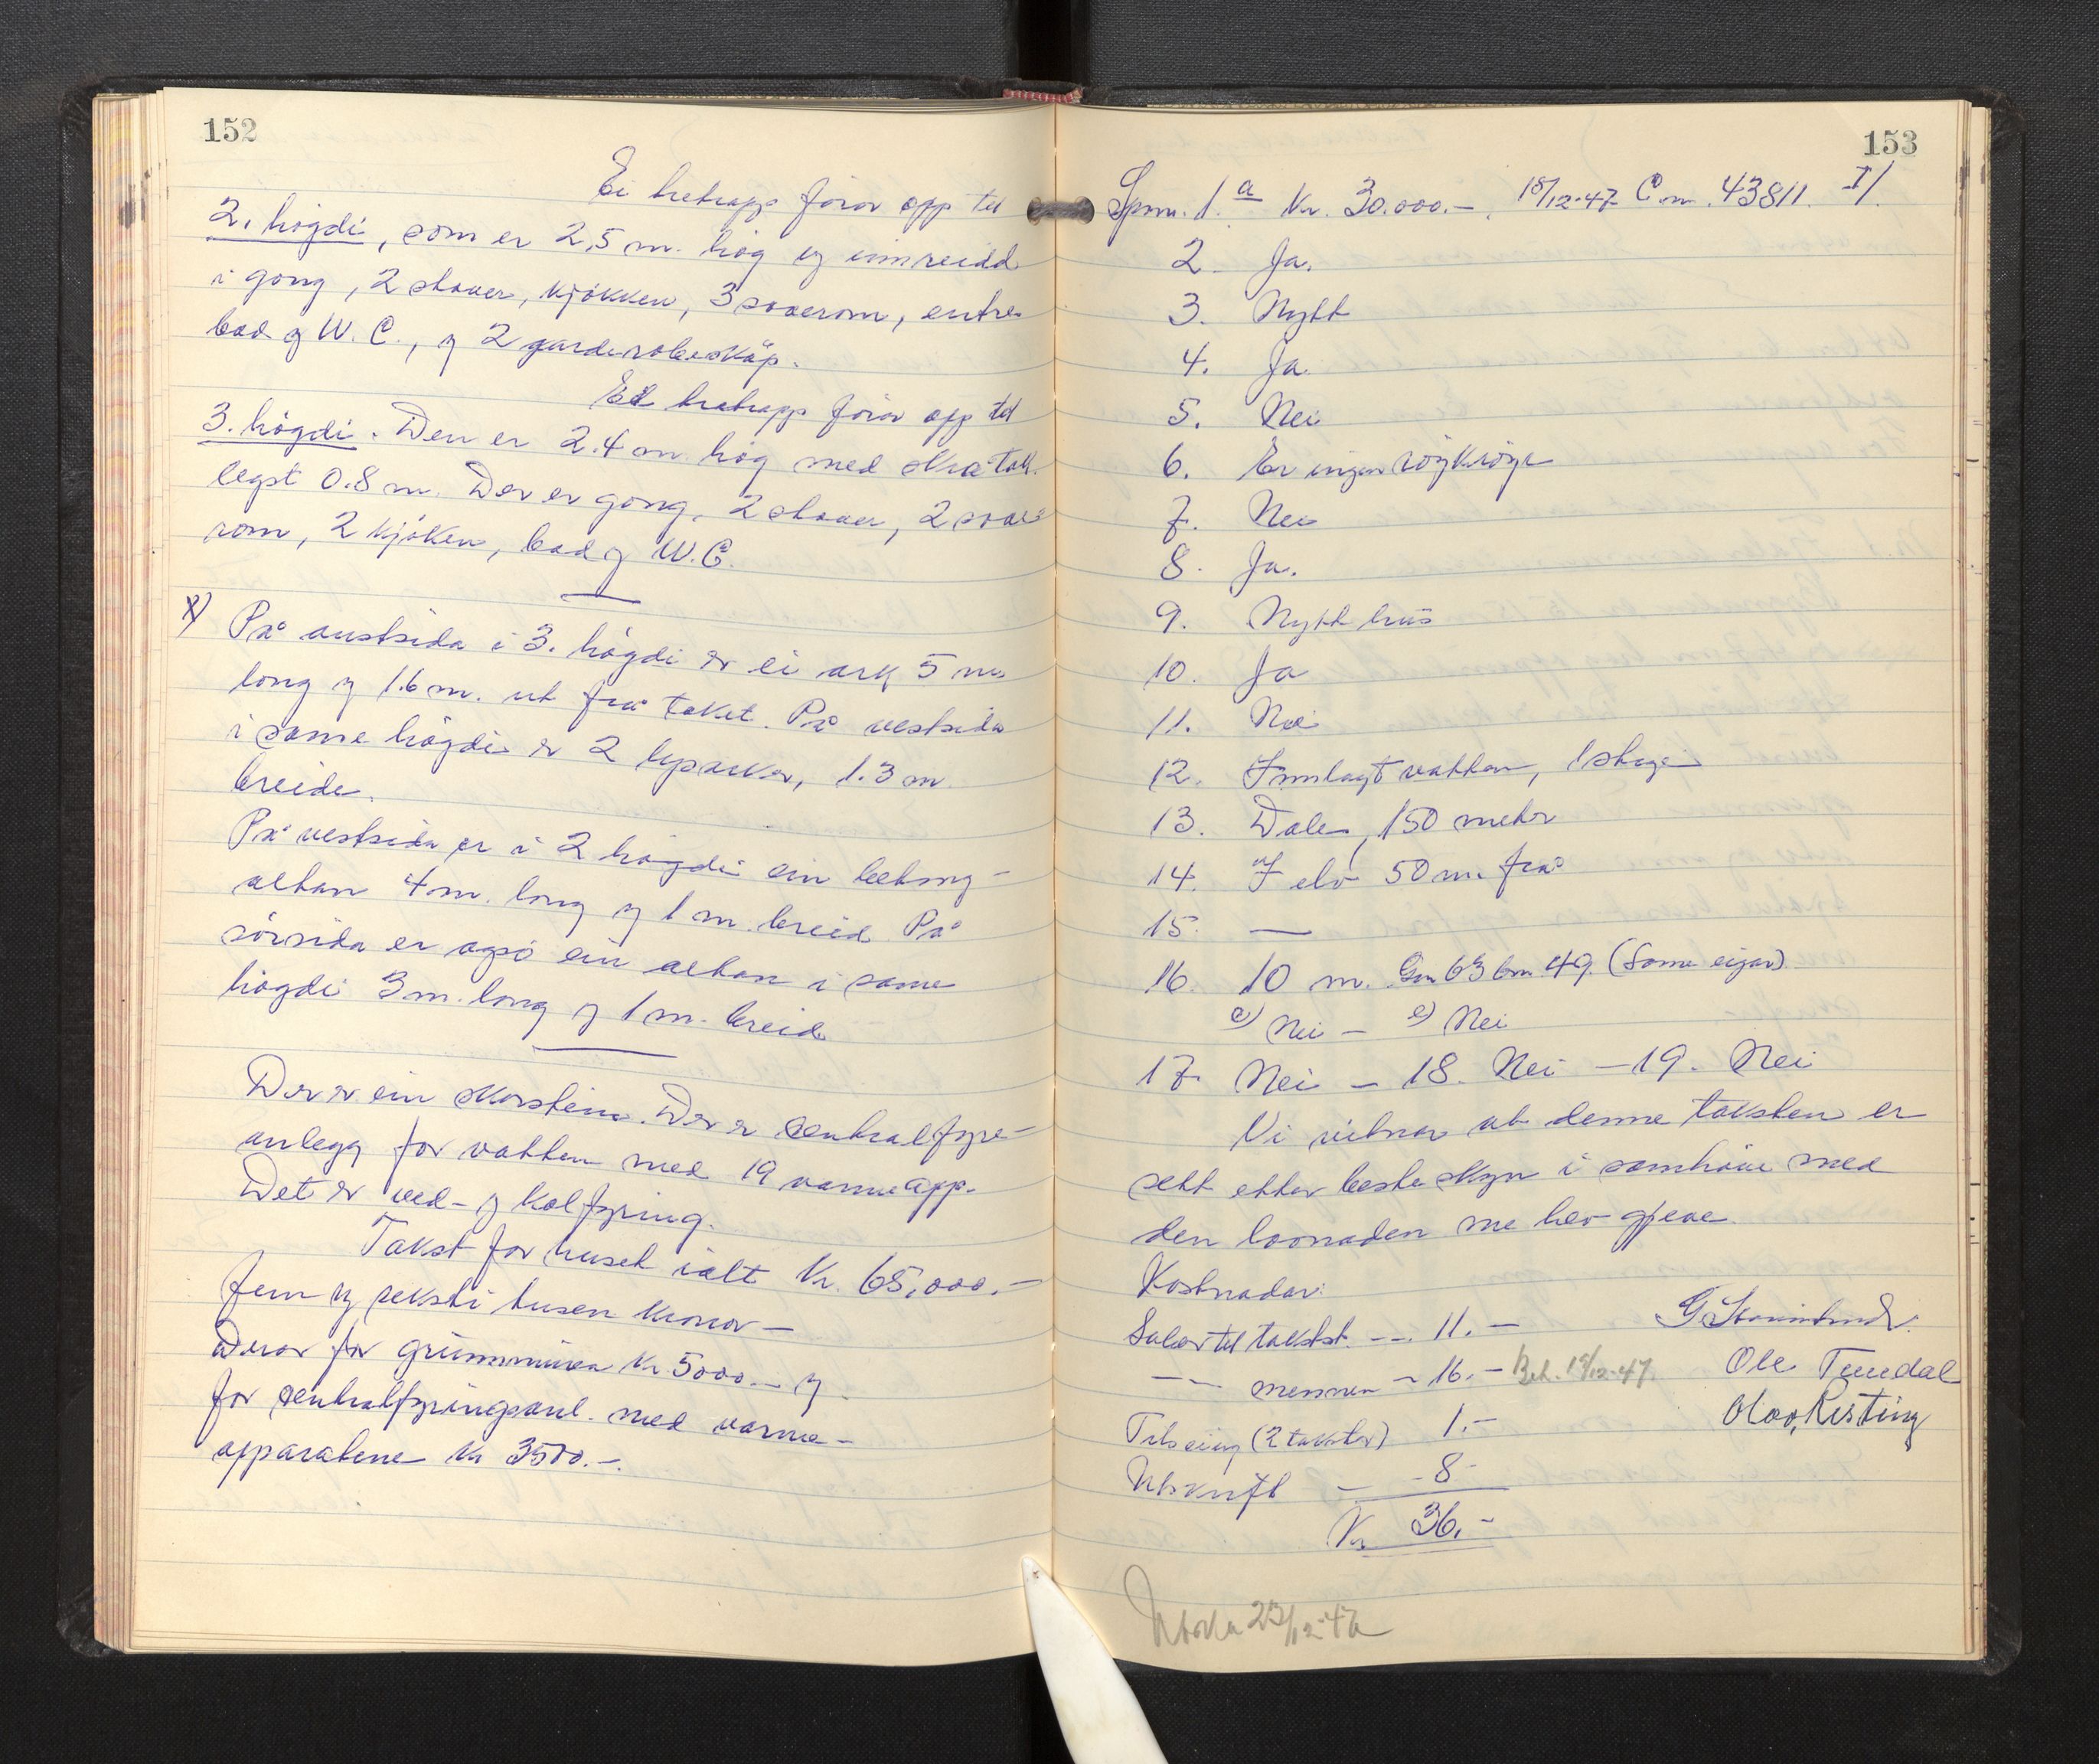 152
Ei tretrapp förer opp til
2. högdi, som er 2,5 m. hög og innreidd
i gong, 2 stover, kjökken, 3 soverom, entre
bad og W.C., og 2 garderobeskåp.
Ei tretrapp förer opp til
3. högdi. Den er 2.4 m hög med skråtak
legst 0.8 m. Der er gong, 2 stover, 2 sove
rom, 2 kjöken, bad og W.C.
x) På austsida i 3. högdi er ei ark 5 m
long og 1.6 m. ut frå taket. På vestsida
i same högdi er 2 luparker, 1.3 m
breide.
På vestsida er i 2 högdi ein betong-
altan 4 m. long og 1 m. breid. På
sörsida er også ein altan i same
högdi 3 m. long og 1 m. breid
Der er ein skorstein. Der er sentralfyre-
anlegg for vatten med 19 varmeapp.
Det er ved- og kolfyring.
Takst for huset ialt Kr. 65.000.-
Fem og seksti tusen kronor -
Derav for grunnmuren Kr 5000.- og
for sentralfyringsanl. med varme-
apparatene Kr 3500.-.
153
Spm. 1. a Kr. 30.000.-, 18/12-47 C.m. 43811. I/.
2. Ja.
3. Nytt
4. Ja
5. Nei
6. Er ingen röykröyr
7. Nei
8. Ja.
9. Nytt hus
10. Ja
11. Nei
12. Innlagt vatten, 1 stige
13. Dale, 150 meter
14. I elv 50 m. frå
15. —
16. 10 m. Gm 63 bm 49. (Same eigar)
c) Nei - e) Nei
17 Nei - 18. Nei - 19. Nei
Vi vitnar at denne taksten er
sett etter beste skyn i samhöve med
den lovnaden me hev gjeve.
Kostnadar:
Salær til takstst. -- 11.-
-- mennen - 16.- Bet. 18/12-47.
Tilseing (2 takster) 1.-
Utskrift - 8-
Kr 36.-
Ole Tuedal
Olav Risting
23/12-47